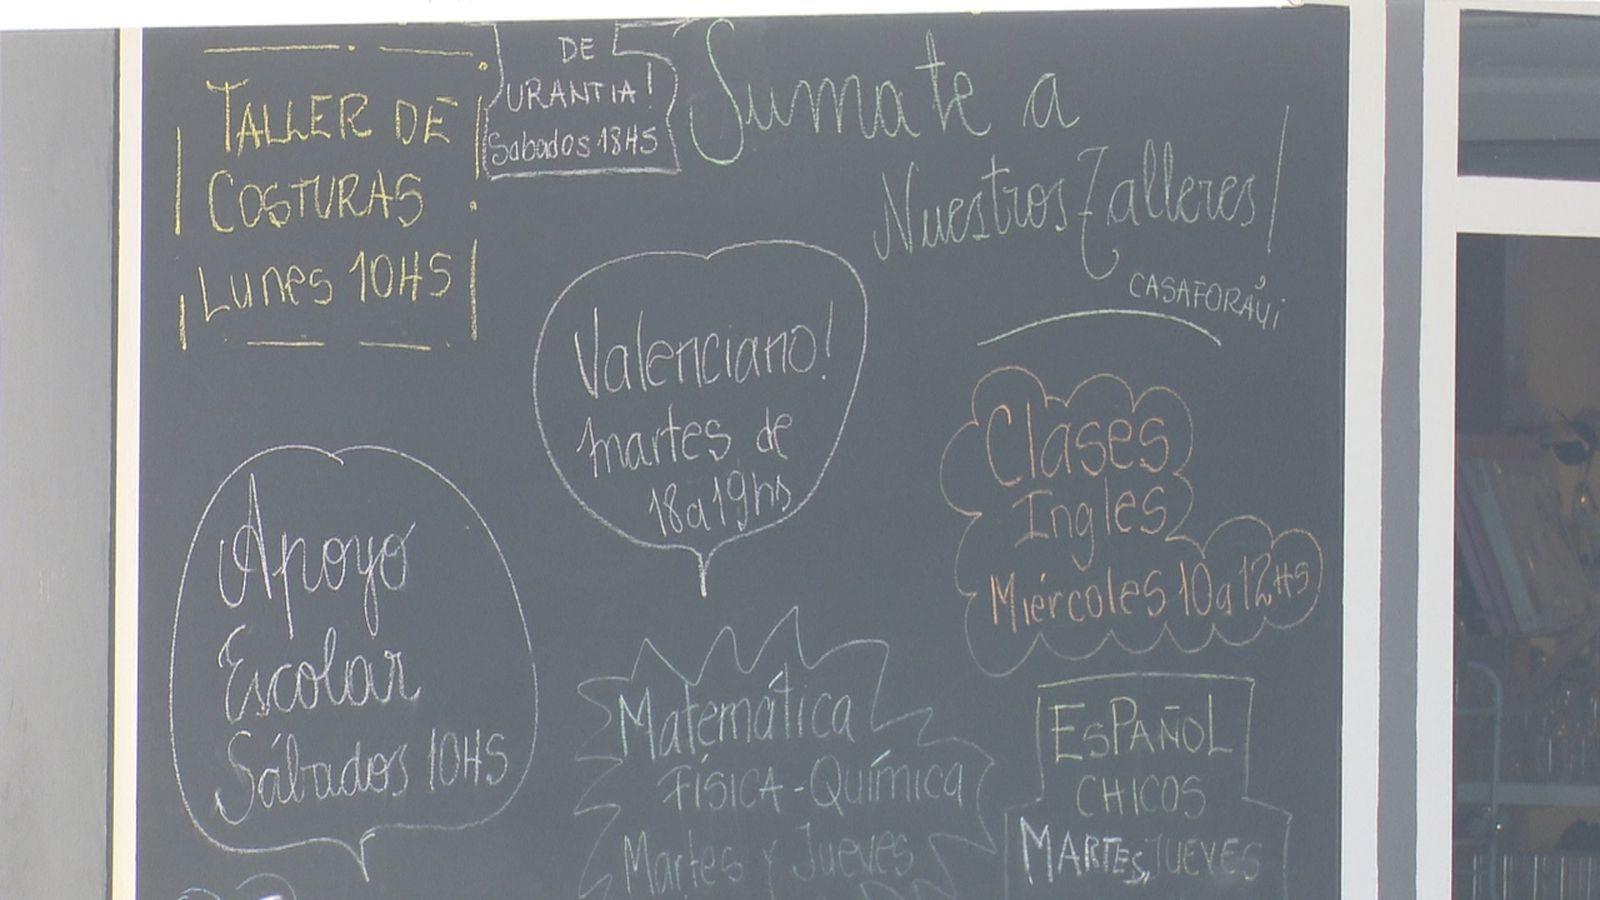 TALLER DE
COSTURAS
LUNES 10HS
DE
URANTIA!
Sabados 18HS
Sumate a
Nuestros Talleres!
CASAFORAUI
Valenciano!
martes de
18 a 19hs
Clases
Ingles
Miércoles 10 a 12HS
Apoyo
Escolar
Sábados 10HS
Matemática
FÍSICA - Química
Martes y Jueves
ESPAÑOL
CHICOS
MARTES, JUEVES